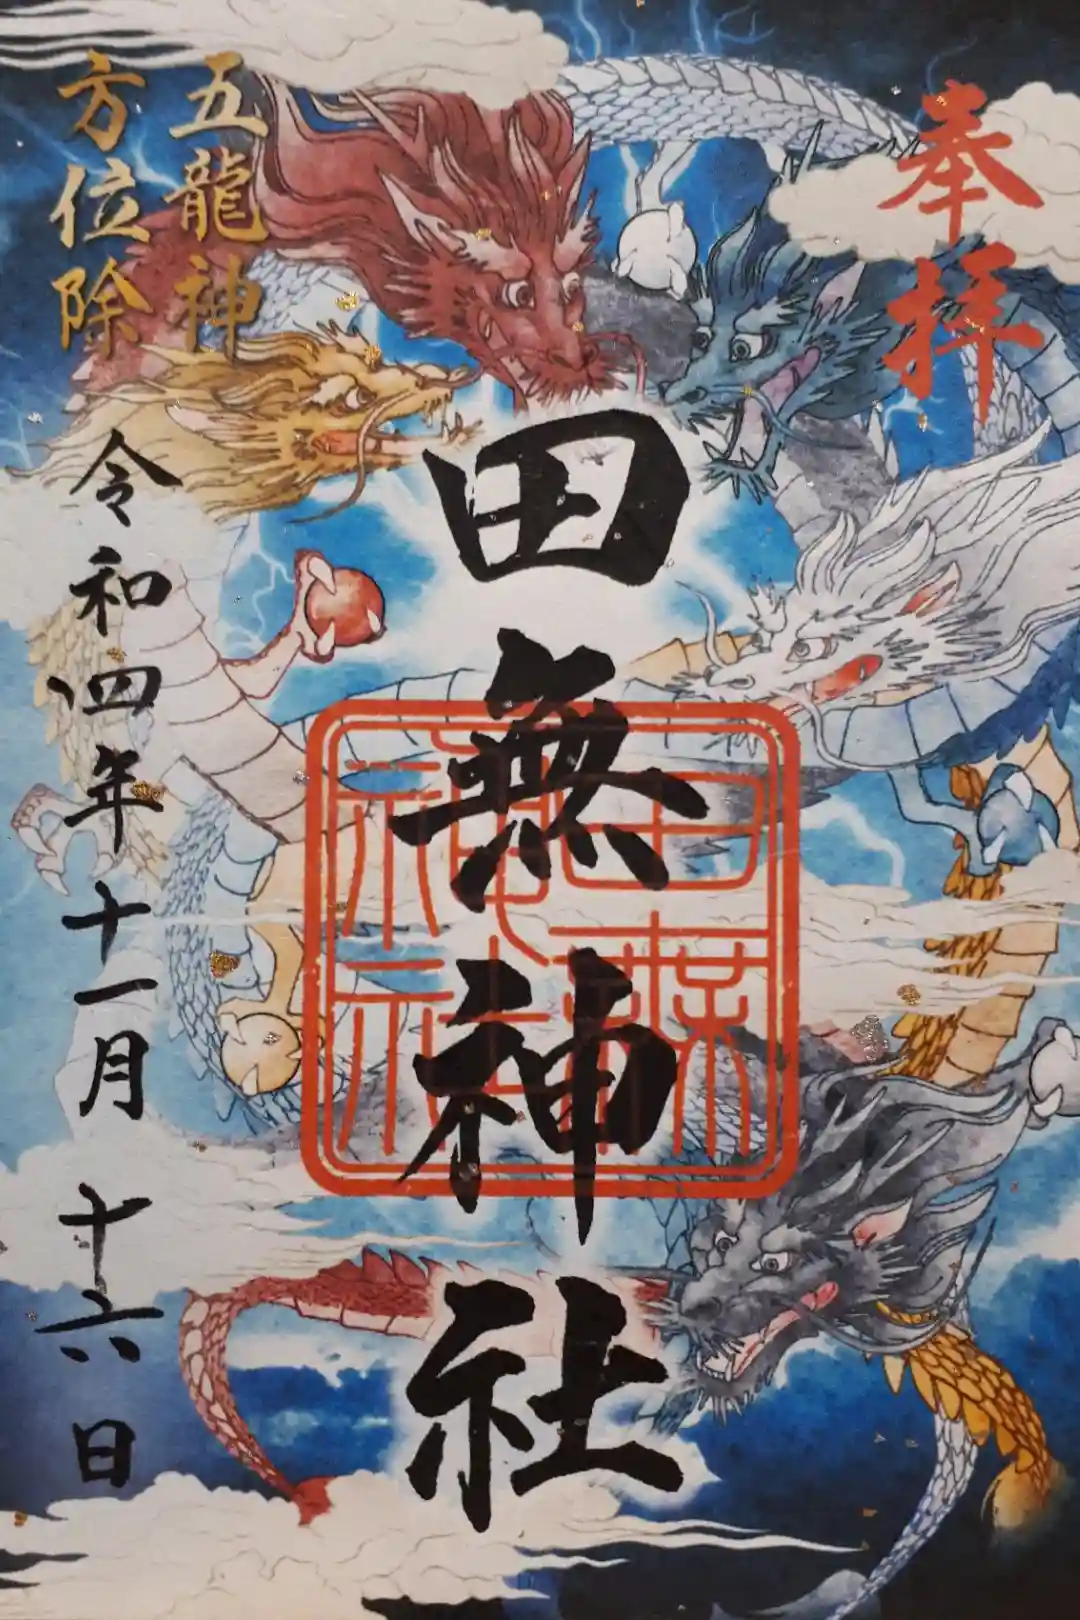 奉拝
田無神社
田無
神社
五龍神
方位除
令和四年十一月十六日